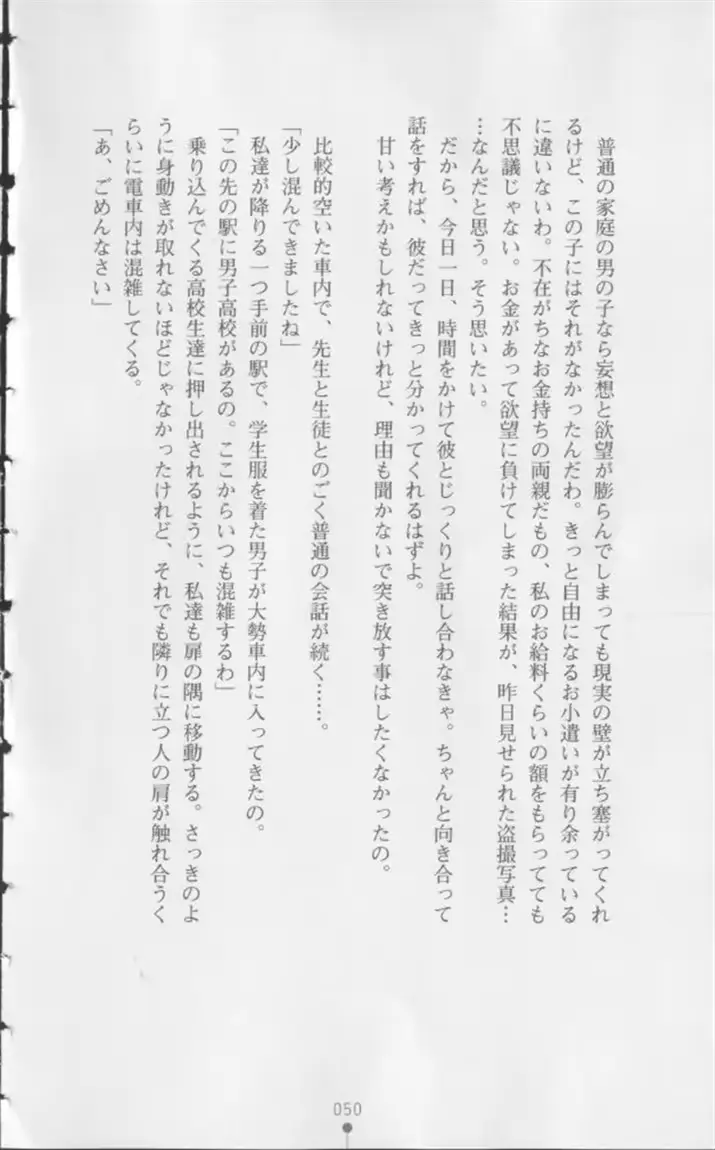 普通の家庭の男の子なら妄想と欲望が膨らんでしまっても現実の壁が立ち塞がってくれ
るけど、この子にはそれがなかったんだわ。きっと自由になるお小遣いが有り余っている
に違いないわ。不在がちなお金持ちの両親だもの、私のお給料くらいの額をもらってても
不思議じゃない。お金があって欲望に負けてしまった結果が、昨日見せられた盗撮写真…
…なんだと思う。そう思いたい。
だから、今日一日、時間をかけて彼とじっくりと話し合わなきゃ。ちゃんと向き合って
話をすれば、彼だってきっと分かってくれるはずよ。
甘い考えかもしれないけれど、理由も聞かないで突き放す事はしたくなかったの。
比較的空いた車内で、先生と生徒とのごく普通の会話が続く……。
「少し混んできましたね」
私達が降りる一つ手前の駅で、学生服を着た男子が大勢車内に入ってきたの。
「この先の駅に男子高校があるの。ここからいつも混雑するわ」
乗り込んでくる高校生達に押し出されるように、私達も扉の隅に移動する。さっきのよ
うに身動きが取れないほどじゃなかったけれど、それでも隣りに立つ人の肩が触れ合うく
らいに電車内は混雑してくる。
「あ、ごめんなさい」
050